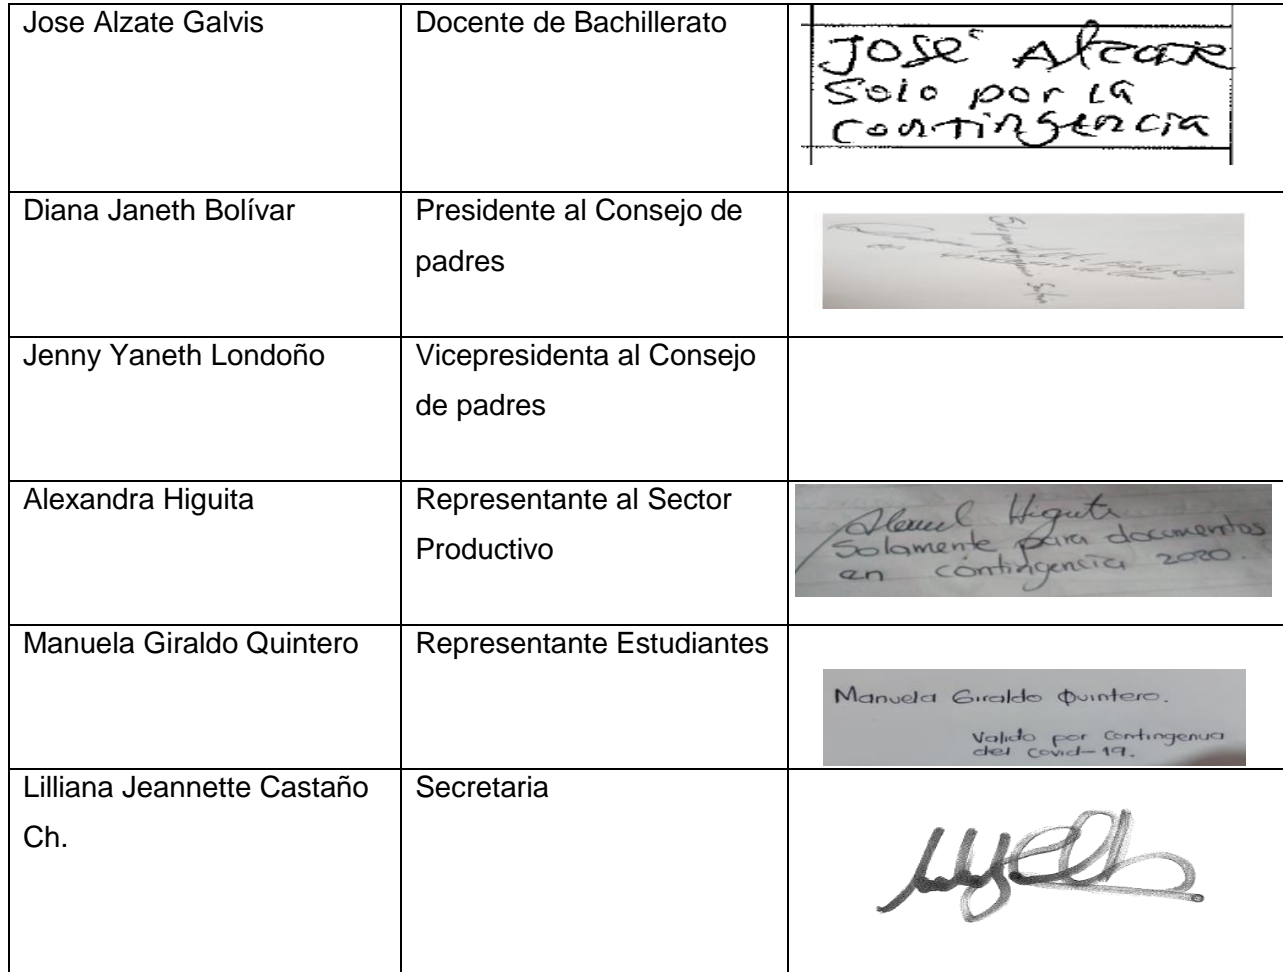 Jose Alzate Galvis
Docente de Bachillerato
José Alzate
Solo por la
contingencia
Diana Janeth Bolívar
Presidente al Consejo de
padres
Jenny Yaneth Londoño
Vicepresidenta al Consejo
de padres
Alexandra Higuita
Representante al Sector
Productivo
Higuita
Solamente para documentos
en contingencia 2020.
Manuela Giraldo Quintero
Representante Estudiantes
Manuela Giraldo Quintero.
Valido por contingencia
del covid-19.
Lilliana Jeannette Castaño
Ch.
Secretaria